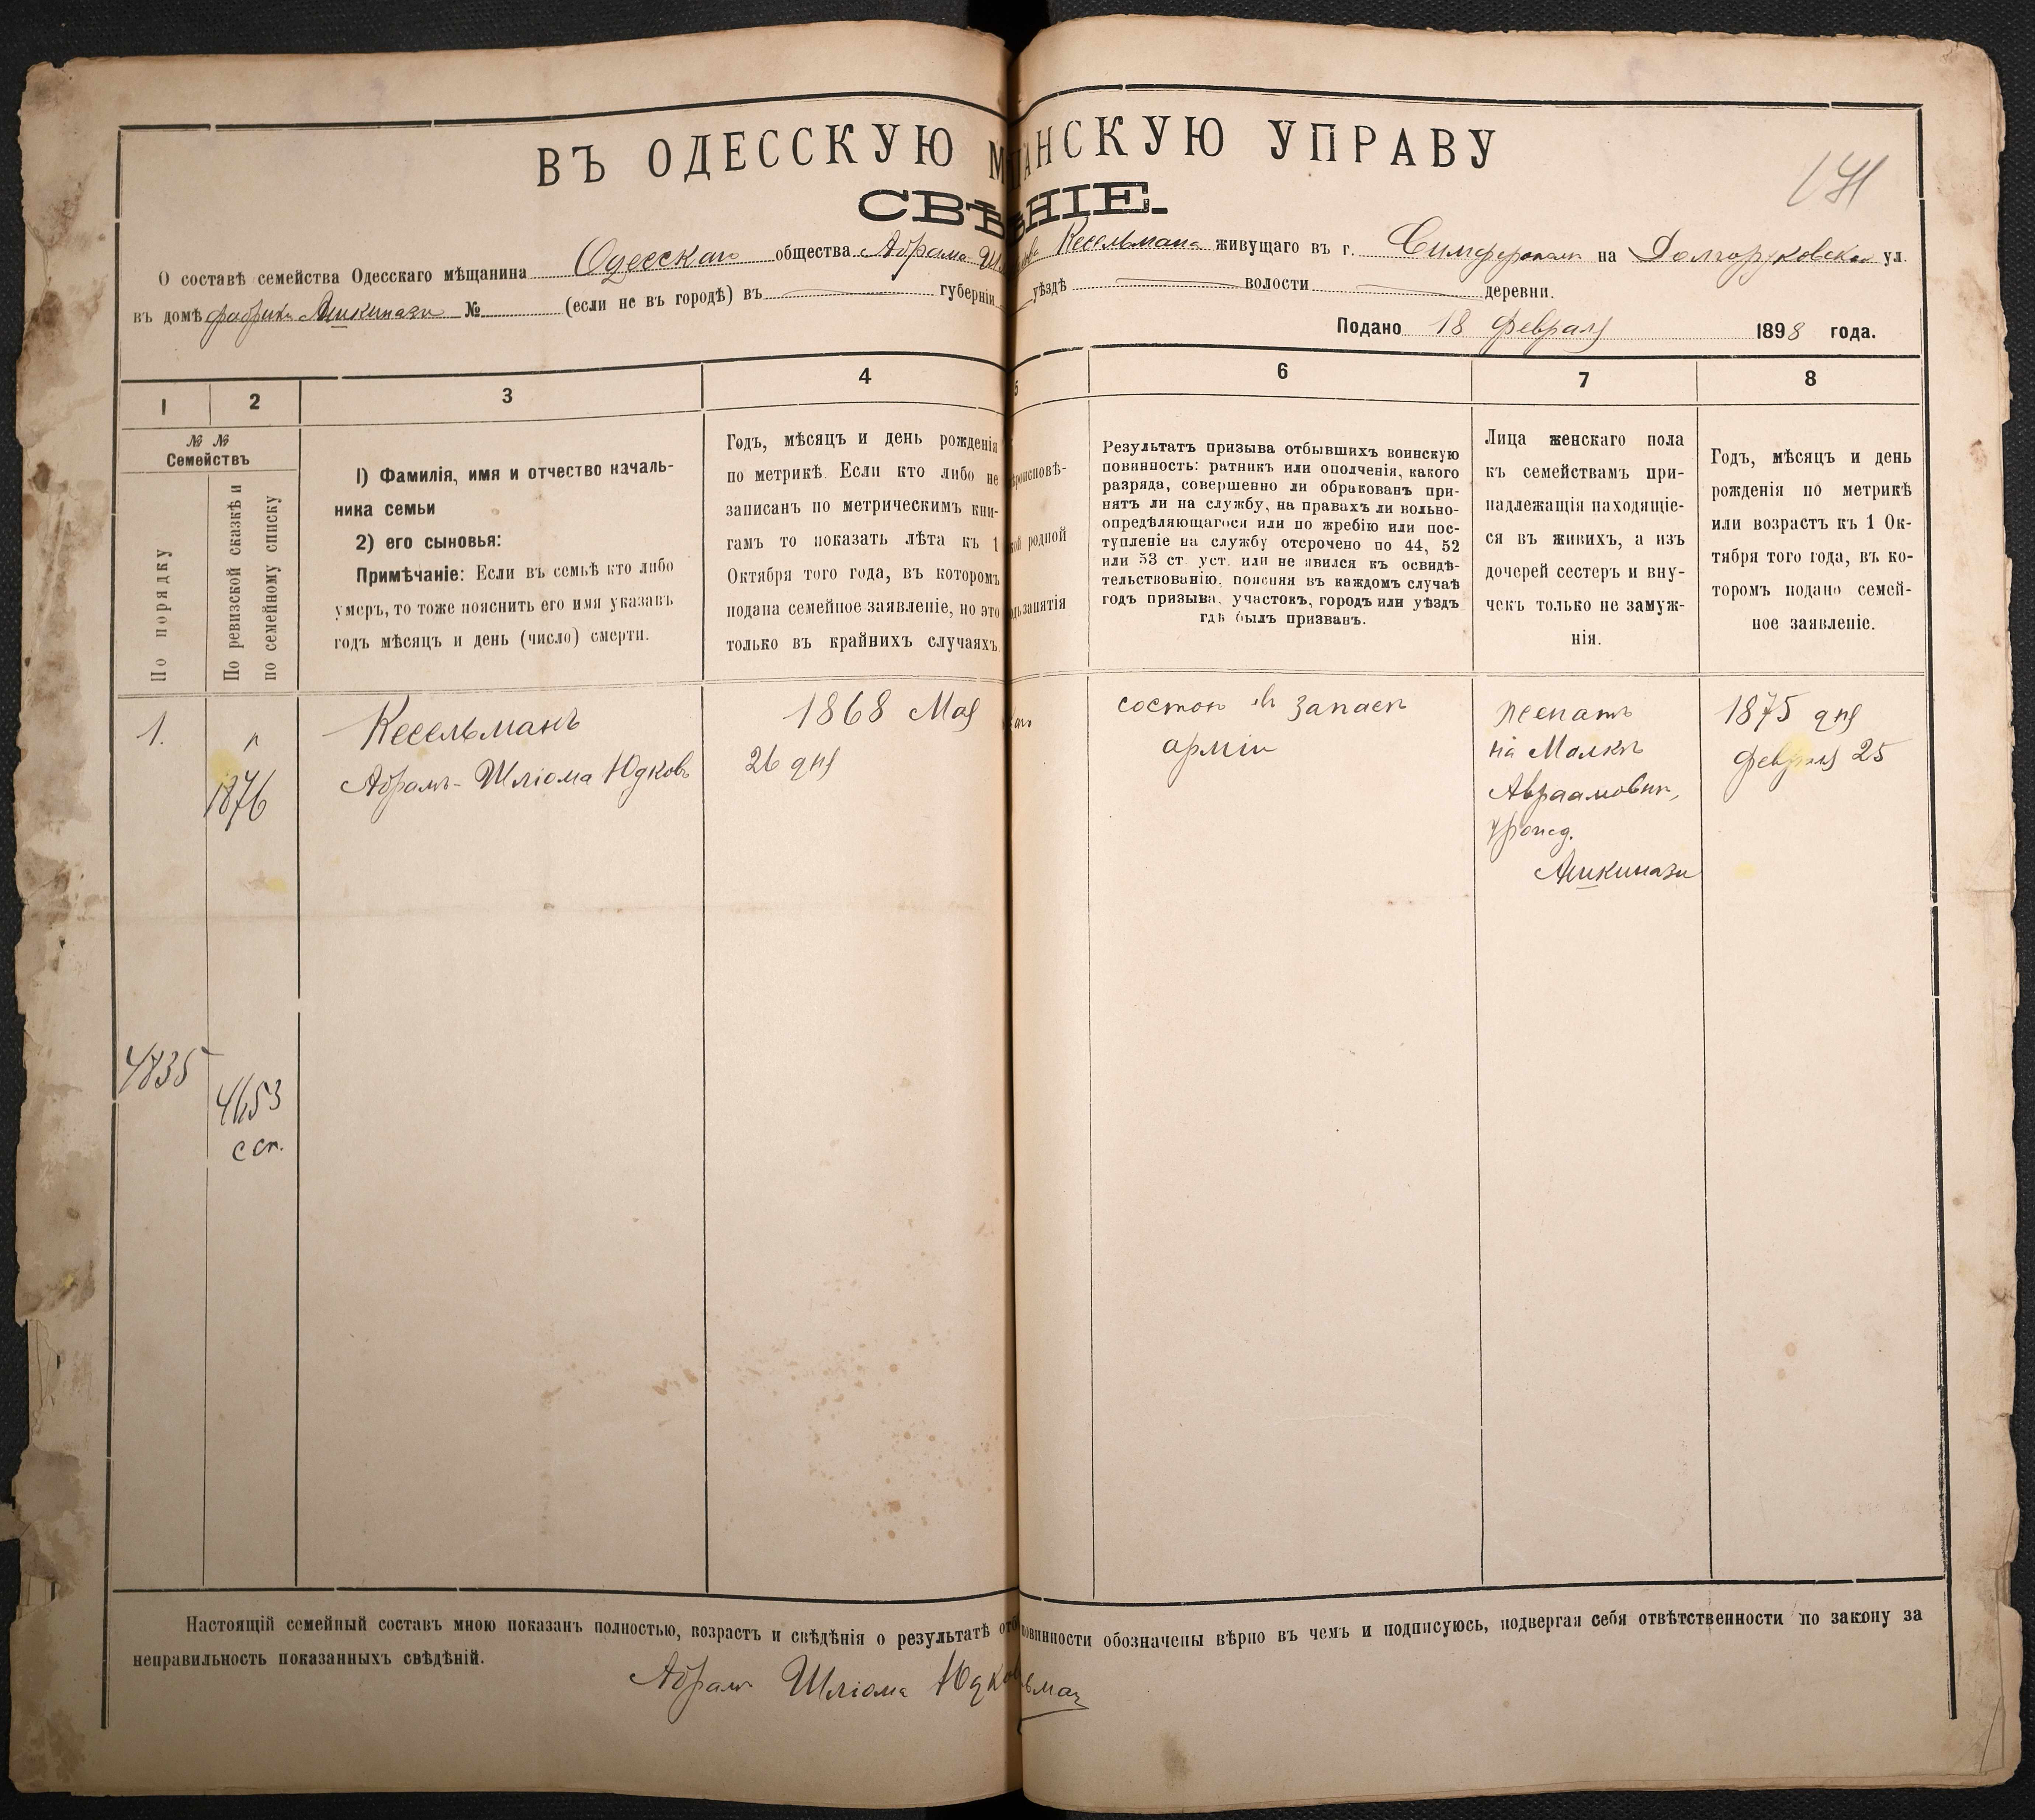 ВЪ ОДЕССКУЮ М АНСКУЮ УПРАВУ
171
СВѢ НІЕ.
О составѣ семейства Одесскаго мѣщанина Одесскаго общества Абрама Шл Кесельмана живущаго въ г. Симферополѣ на Долгоруковской ул.
въ домѣ фабрики Ашкинази № (если не въ городѣ) въ губерніи уѣздѣ волости деревни.
Подано 18 февраля 1898 года.
1 2 3 4 5 6 7 8
№ №
Семействъ
По порядку
По ревизской сказкѣ и
по семейному списку
1) Фамилія, имя и отчество началь-
ника семьи
2) его сыновья:
Примѣчаніе: Если въ семьѣ кто либо
умеръ, то тоже пояснить его имя указавъ
годъ мѣсяцъ и день (число) смерти.
Годъ, мѣсяцъ и день рожденія
по метрикѣ. Если кто либо не
записанъ по метрическимъ кни-
гамъ то показать лѣта къ 1
Октября того года, въ которомъ
подана семейное заявленіе, но это
только въ крайнихъ случаяхъ.
роисповѣ-
родной
занятія
Результатъ призыва отбывшихъ воинскую
повинность: ратникъ или ополченія, какого
разряда, совершенно ли обракованъ при-
нятъ ли на службу, на правахъ ли вольно-
опредѣляющагося или по жребію или пос-
тупленіе на службу отсрочено по 44, 52
или 53 ст. уст. или не явился къ освидѣ-
тельствованію, поясняя въ каждомъ случаѣ
годъ призыва, участокъ, городъ или уѣздъ
гдѣ былъ призванъ.
Лица женскаго пола
къ семействамъ при-
надлежащія находящіе-
ся въ живихъ, а изъ
дочерей сестеръ и вну-
чекъ только не замуж-
нія.
Годъ, мѣсяцъ и день
рожденія по метрикѣ
или возрастъ къ 1 Ок-
тября того года, въ ко-
торомъ подано семей-
ное заявленіе.
1.
1876
Кесельманъ
Абрамъ-Шліома Юдковъ
1868 Мая
26 дня
состои въ запасѣ
арміи
женатъ
на Малкѣ
Авраамовнѣ,
урожд.
Ашкинази
1875 дня
февраля 25
4835
4653
с сп.
Настоящій семейный составъ мною показанъ полностью, возрастъ и свѣдѣнія о результатѣ отб повинности обозначены вѣрно въ чемъ и подписуюсь, подвергая себя отвѣтственности по закону за
неправильность показанныхъ свѣдѣній.
Абрам Шліома Юдков ьман